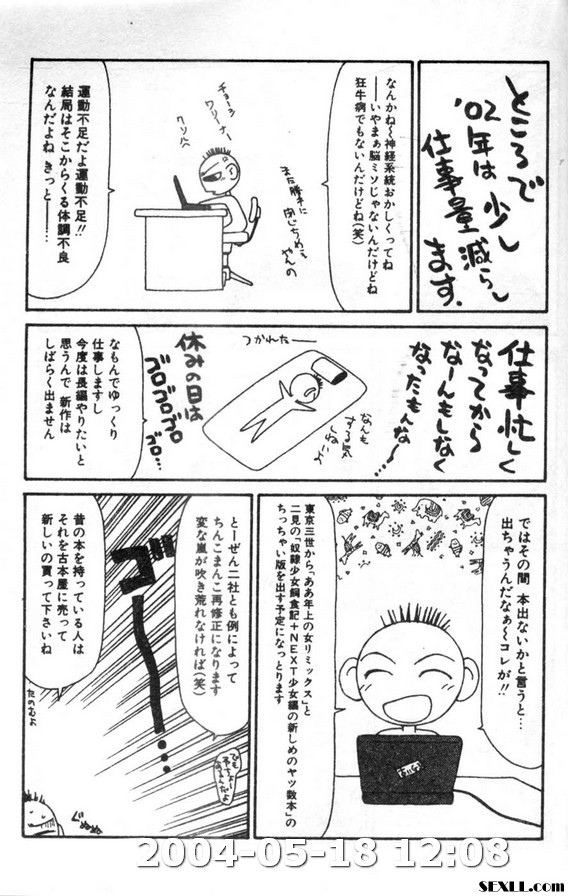 ところで
'02年は少し
仕事量減らし
ます.
なんかね〜神経系統おかしくってね
――いやまぁ脳ミソじゃないんだけどね
狂牛病でもないんだけどね(笑)
運動不足だよ運動不足!!
結局はそこからくる体調不良
なんだよね きっと――……
仕事忙しく
なってから
なーんもしなく
なったもんな〜…!
なんも
する気
しねいズ
つかれたー
休みの日は
ゴロゴロゴロ
ゴロ…
なもんでゆっくり
仕事しますし
今度は長編やりたいと
思うんで 新作は
しばらく出ません
ではその間 本出ないかと言うと…
出ちゃうんだなぁ〜コレが!!
東京三世から「ああ年上の女リミックス」と
二見の「奴隷少女飼食記+NEXT少女編の新しめのヤツ数本」の
ちっちゃい版を出す予定になっとります
とーぜん二社とも例によって
ちんこまんこ再修正になります
変な嵐が吹き荒れなければ(笑)
昔の本を持っている人は
それを古本屋に売って
新しいの買って下さいね
たのむよ
2004-05-18 12:08
SEXLL.COM